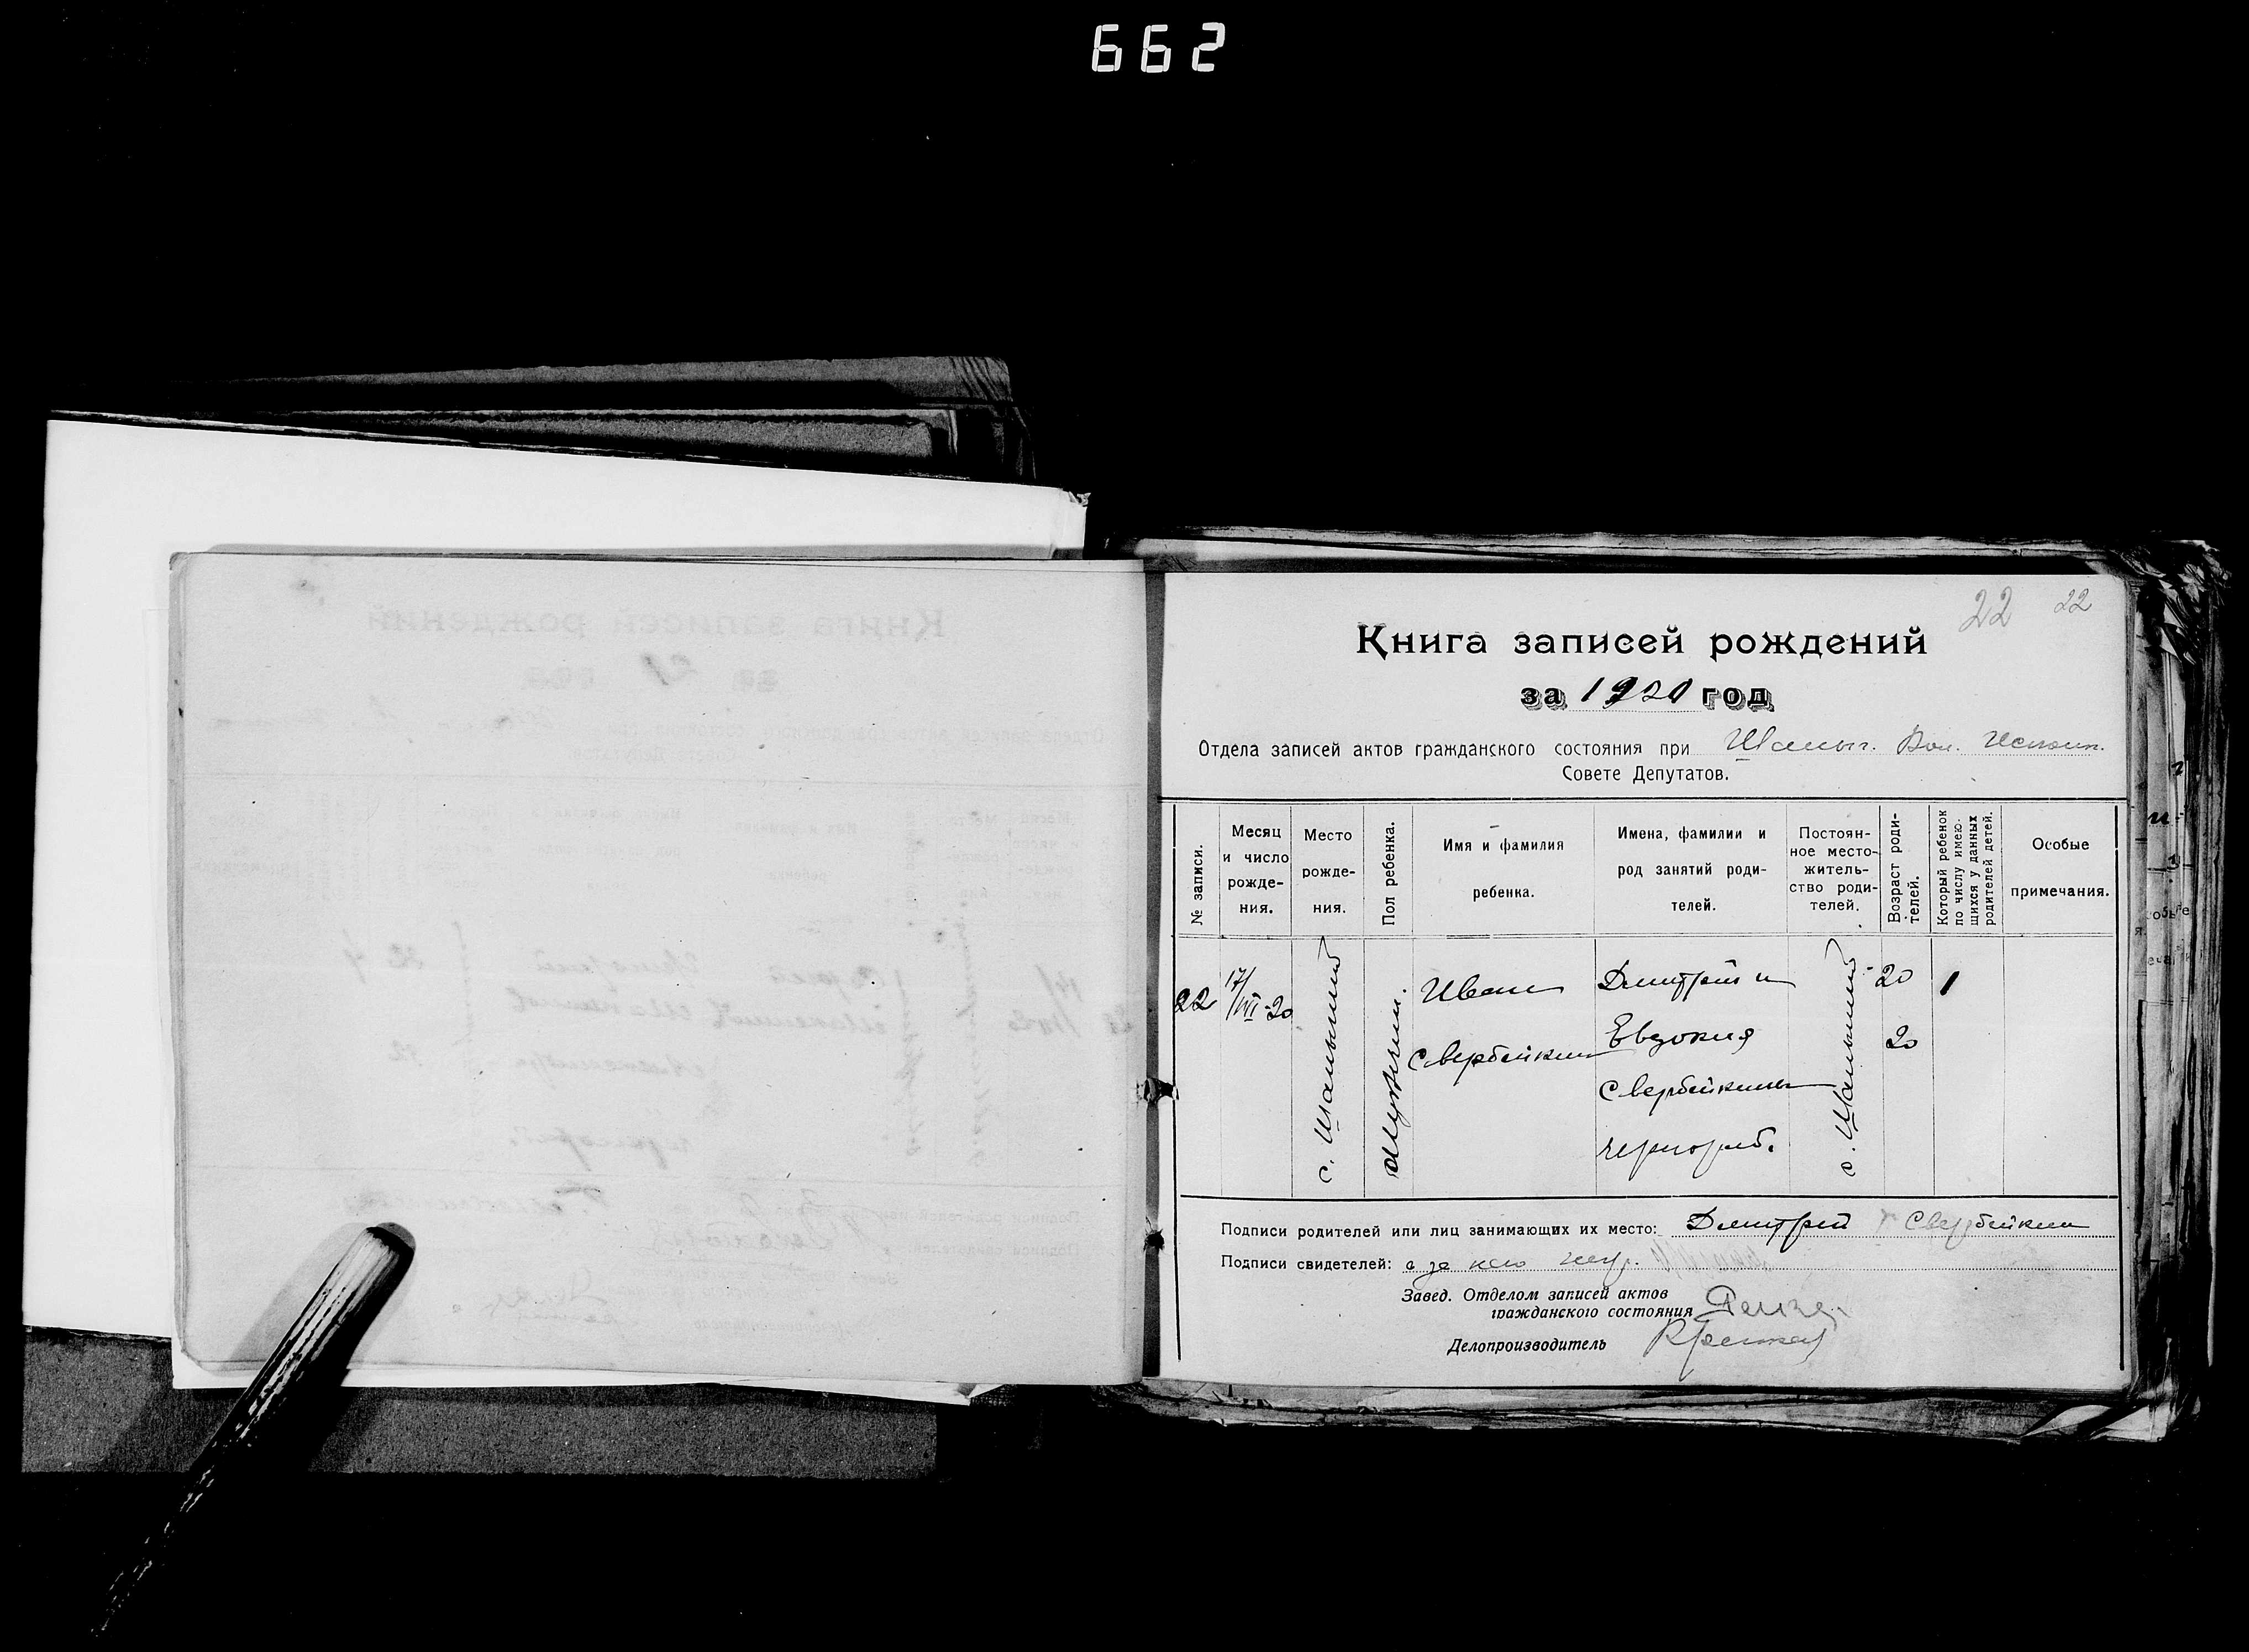 662
22 22
Книга записей рождений
за 1920 год
Отдела записей актов гражданского состояния при Шаныг. Вол. Исполн.
Совете Депутатов.
№ записи.
Месяц и число рожде- ния.
Место рожде- ния.
Пол ребенка.
Имя и фамилия ребенка.
Имена, фамилии и род занятий роди- телей.
Постоян- ное место- житель- ство роди- телей.
Возраст роди- телей.
Который ребенок по числу имею- щихся у данных родителей детей.
Особые примечания.
22
17/VII-20
Мужчин.
Иван
Свербейкин
Дмитрий и
Евдокия
Свербейкины
чернораб.
20
20
1
Подписи родителей или лиц занимающих их место: Дмитрий Свербейкин
Подписи свидетелей: а за него негр.
Завед. Отделом записей актов
гражданского состояния
Делопроизводитель